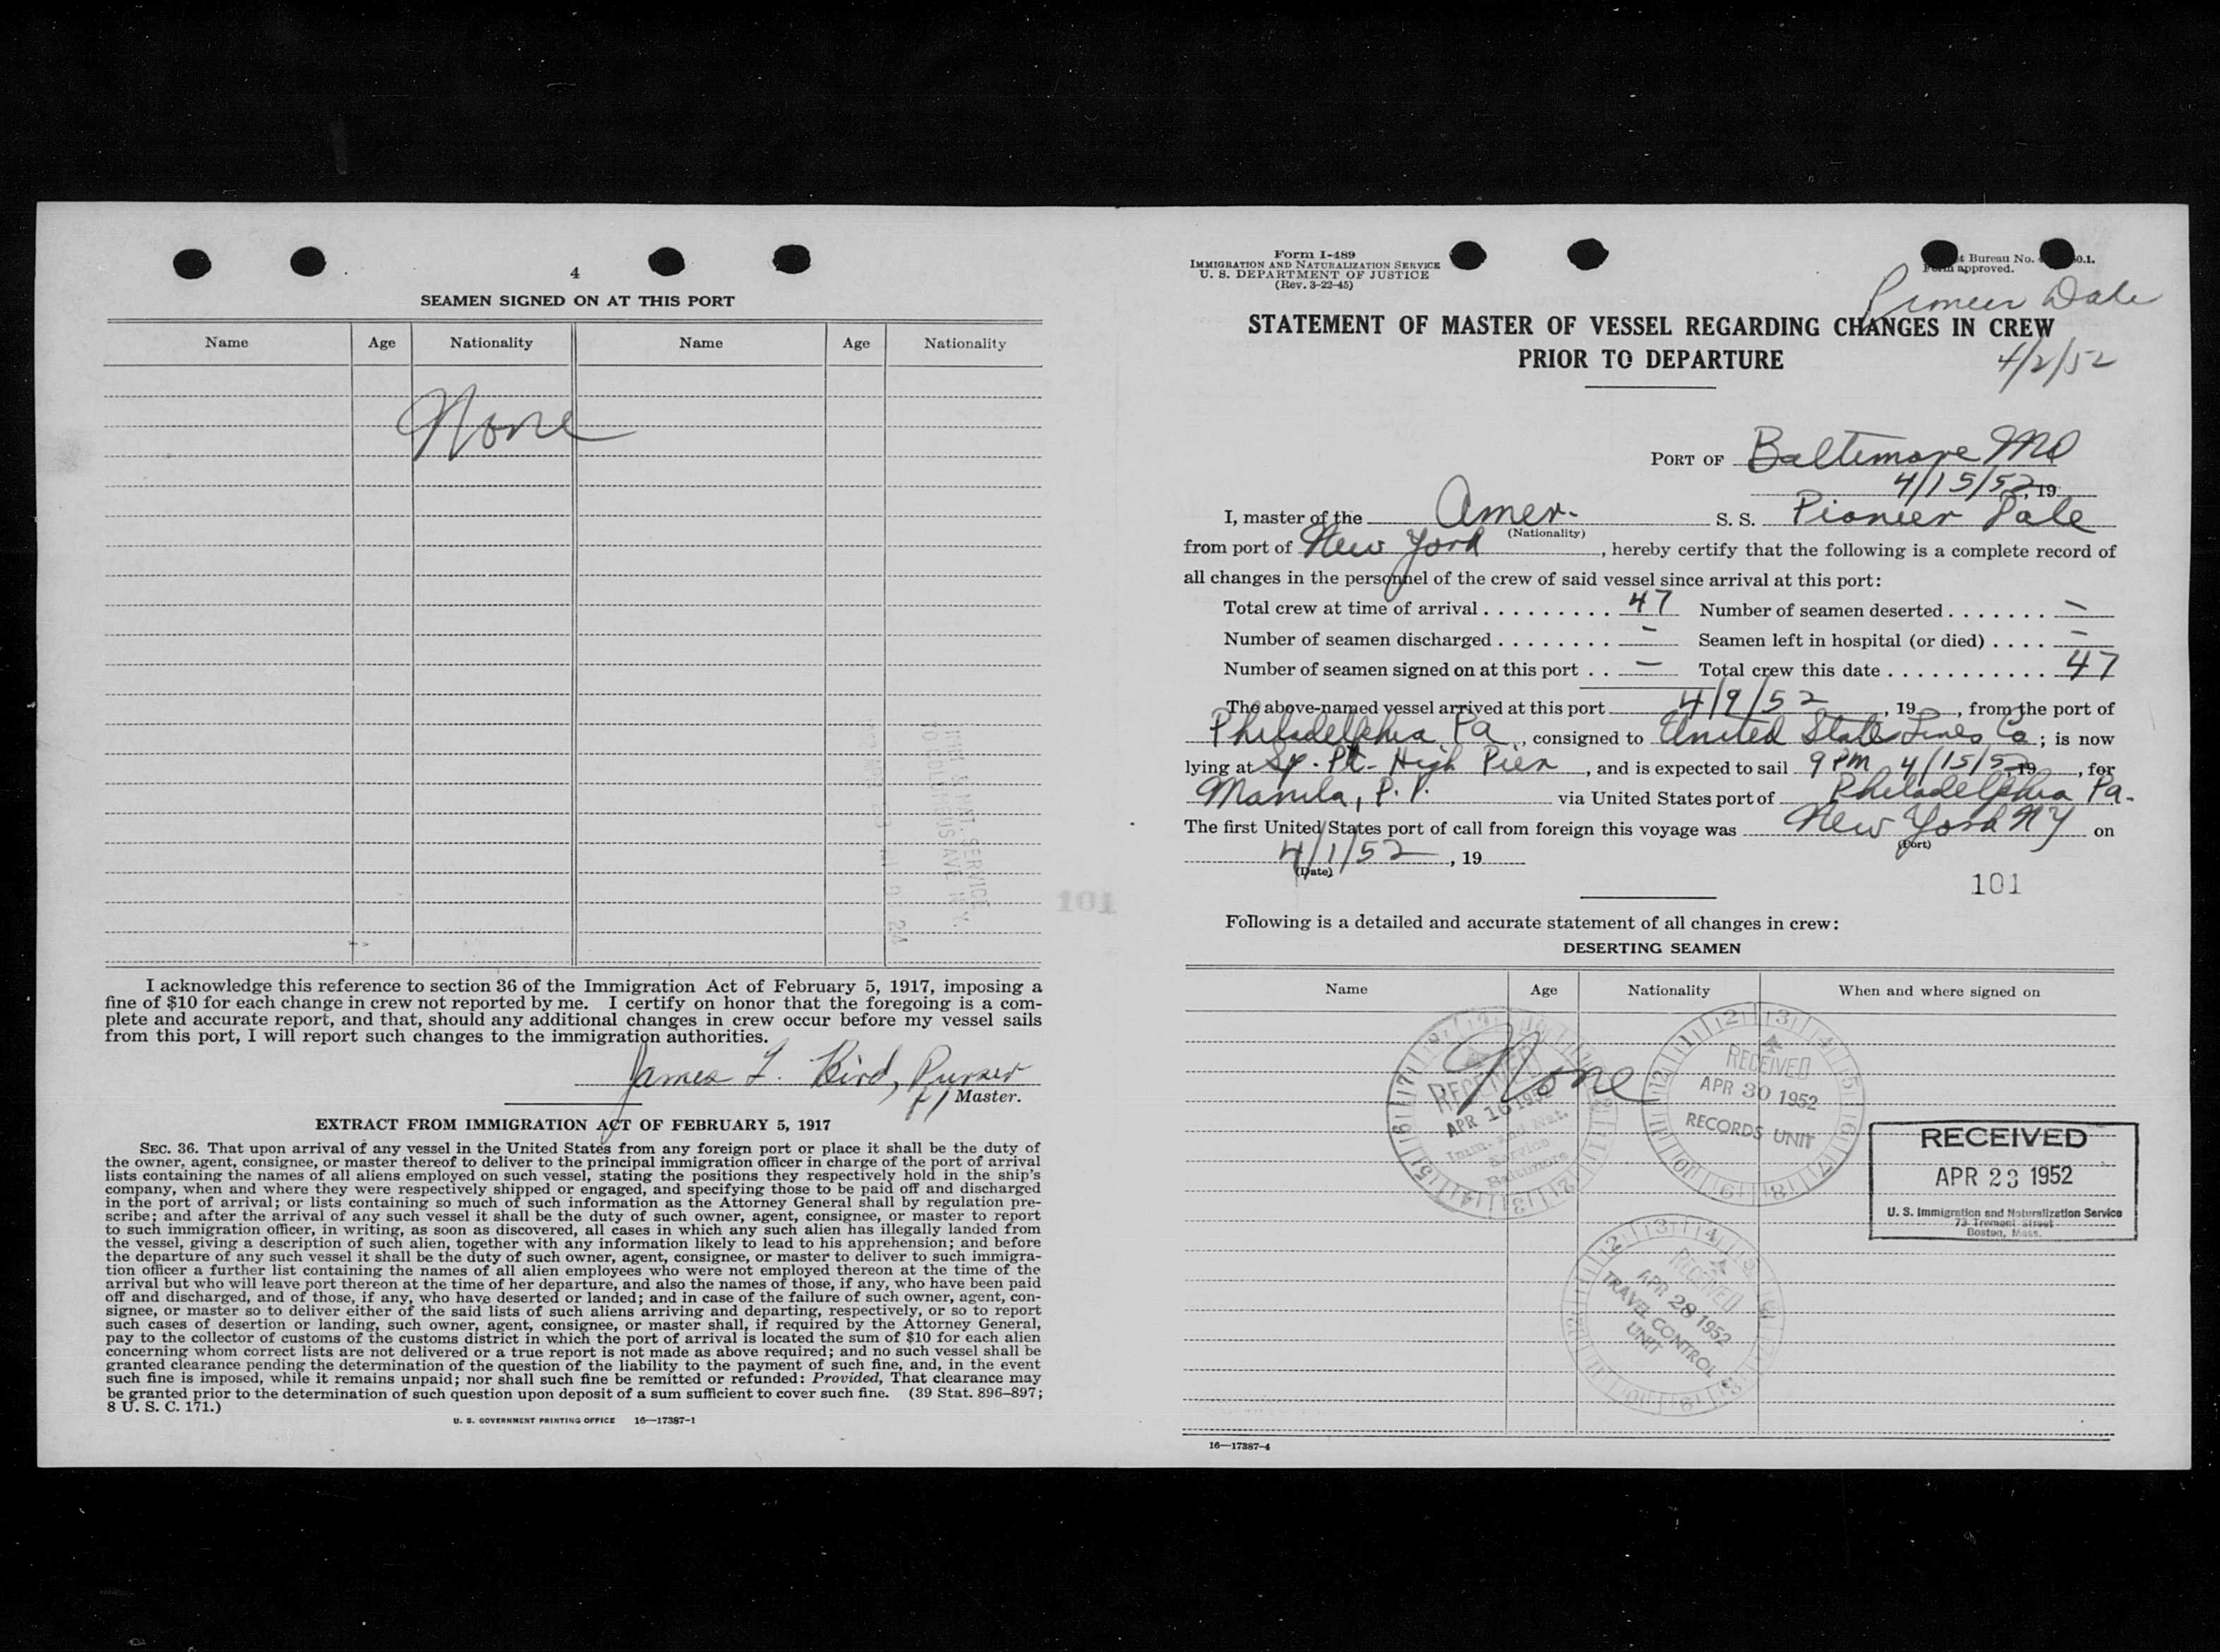 4
SEAMEN SIGNED ON AT THIS PORT
Name Age Nationality Name Age Nationality
None
101
I acknowledge this reference to section 36 of the Immigration Act of February 5, 1917, imposing a
fine of $10 for each change in crew not reported by me. I certify on honor that the foregoing is a com-
plete and accurate report, and that, should any additional changes in crew occur before my vessel sails
from this port, I will report such changes to the immigration authorities.
James L. Bird, Purser
Master.
EXTRACT FROM IMMIGRATION ACT OF FEBRUARY 5, 1917
SEC. 36. That upon arrival of any vessel in the United States from any foreign port or place it shall be the duty of
the owner, agent, consignee, or master thereof to deliver to the principal immigration officer in charge of the port of arrival
lists containing the names of all aliens employed on such vessel, stating the positions they respectively hold in the ship's
company, when and where they were respectively shipped or engaged, and specifying those to be paid off and discharged
in the port of arrival; or lists containing so much of such information as the Attorney General shall by regulation pre-
scribe; and after the arrival of any such vessel it shall be the duty of such owner, agent, consignee, or master to report
to such immigration officer, in writing, as soon as discovered, all cases in which any such alien has illegally landed from
the vessel, giving a description of such alien, together with any information likely to lead to his apprehension; and before
the departure of any such vessel it shall be the duty of such owner, agent, consignee, or master to deliver to such immigra-
tion officer a further list containing the names of all alien employees who were not employed thereon at the time of the
arrival but who will leave port thereon at the time of her departure, and also the names of those, if any, who have been paid
off and discharged, and of those, if any, who have deserted or landed; and in case of the failure of such owner, agent, con-
signee, or master so to deliver either of the said lists of such aliens arriving and departing, respectively, or so to report
such cases of desertion or landing, such owner, agent, consignee, or master shall, if required by the Attorney General,
pay to the collector of customs of the customs district in which the port of arrival is located the sum of $10 for each alien
concerning whom correct lists are not delivered or a true report is not made as above required; and no such vessel shall be
granted clearance pending the determination of the question of the liability to the payment of such fine, and, in the event
such fine is imposed, while it remains unpaid; nor shall such fine be remitted or refunded: Provided, That clearance may
be granted prior to the determination of such question upon deposit of a sum sufficient to cover such fine. (39 Stat. 896–897;
8 U. S. C. 171.)
U. S. GOVERNMENT PRINTING OFFICE 16—17387-1
Form I-489
IMMIGRATION AND NATURALIZATION SERVICE
U. S. DEPARTMENT OF JUSTICE
(Rev. 3-22-45)
Bureau No.
approved.
Pioneer Dale
STATEMENT OF MASTER OF VESSEL REGARDING CHANGES IN CREW
PRIOR TO DEPARTURE
4/2/52
PORT OF Baltimore Md
4/15/52, 19
I, master of the Amer. S. S. Pioneer Dale
(Nationality)
from port of New York, hereby certify that the following is a complete record of
all changes in the personnel of the crew of said vessel since arrival at this port:
Total crew at time of arrival . . . . . . . . . 47 Number of seamen deserted . . . . . . . –
Number of seamen discharged . . . . . . . . – Seamen left in hospital (or died) . . . . –
Number of seamen signed on at this port . . – Total crew this date . . . . . . . . . . . 47
The above-named vessel arrived at this port 4/9/52, 19 , from the port of
Philadelphia Pa, consigned to United State Lines Co; is now
lying at Sp. Pt. High Pier, and is expected to sail 9 PM 4/15/52, 19 , for
Manila, P. I. via United States port of Philadelphia Pa.
The first United States port of call from foreign this voyage was New York NY on
(Port)
4/1/52, 19
(Date)
101
Following is a detailed and accurate statement of all changes in crew:
DESERTING SEAMEN
Name Age Nationality When and where signed on
None
RECEIVED
APR 16 1952
Imm. and Nat.
Service
Baltimore
RECEIVED
APR 30 1952
RECORDS UNIT
RECEIVED
APR 23 1952
U. S. Immigration and Naturalization Service
73 Tremont Street
Boston, Mass.
RECEIVED
APR 28 1952
TRAVEL CONTROL
UNIT
16—17387-4